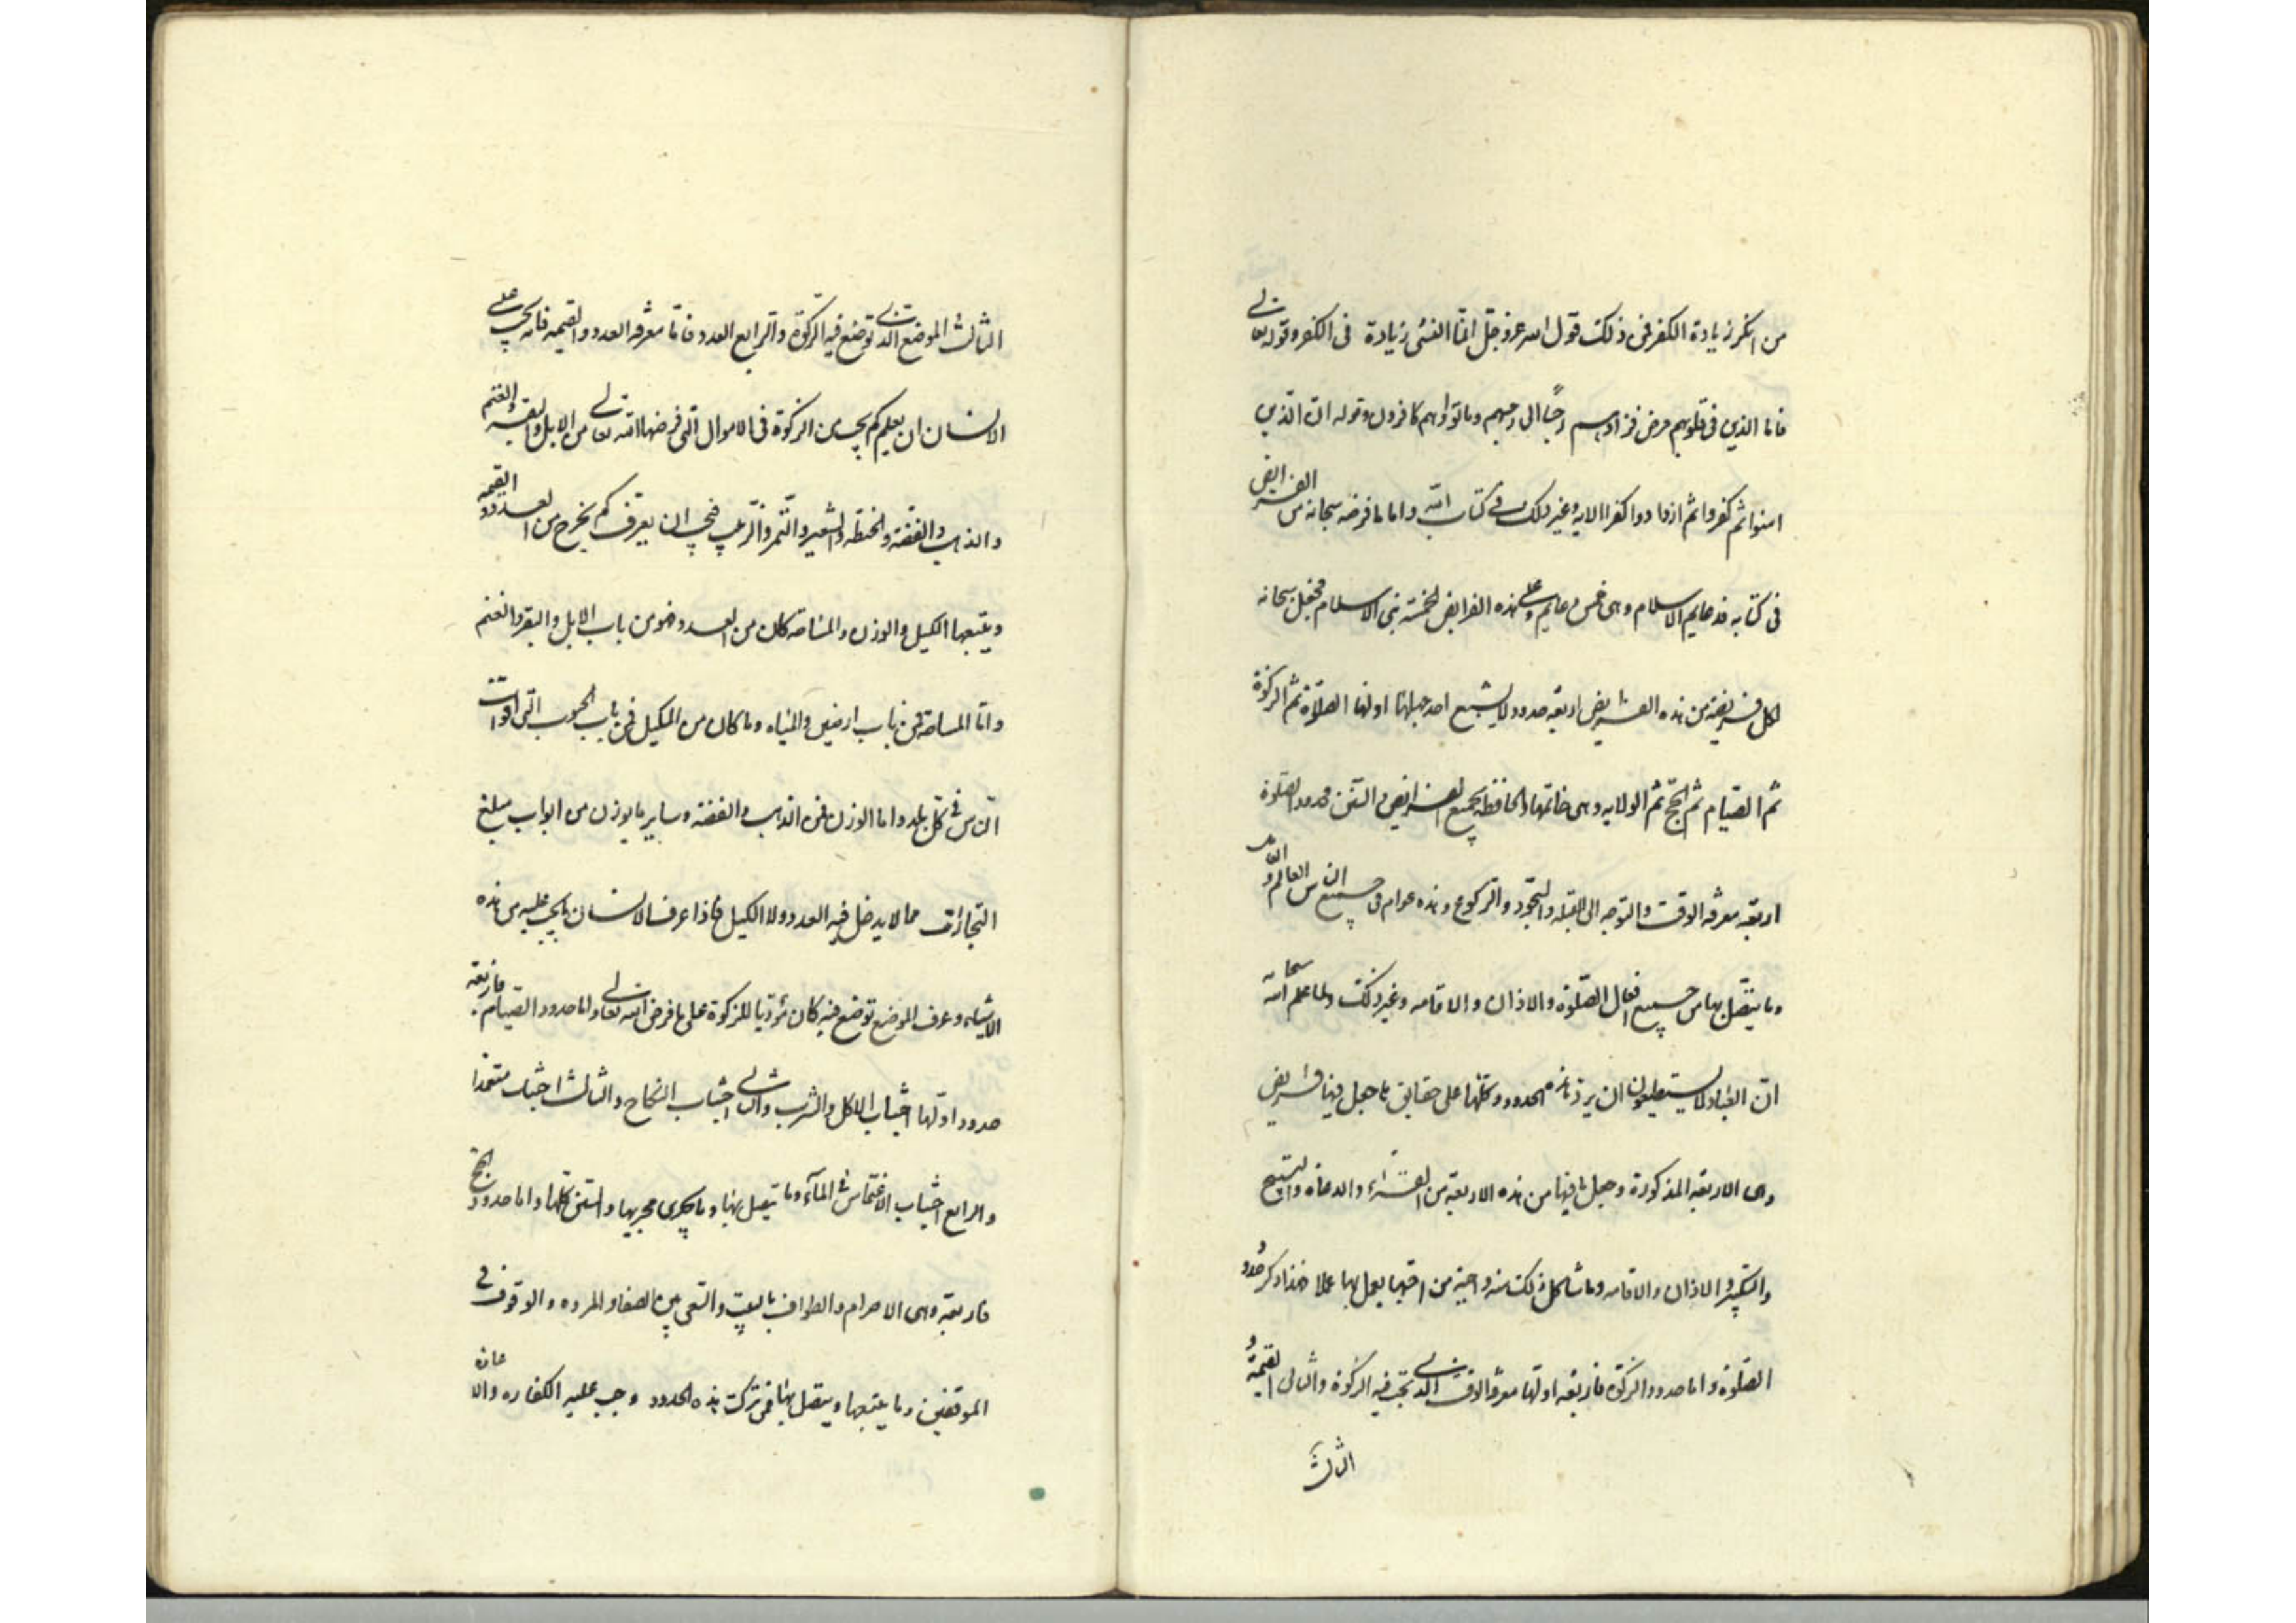 من انكر زيادة الكفر فمن ذلك قول الله عز وجل انما النسئ زيادة فى الكفر وقوله تعالى
فاما الذين فى قلوبهم مرض فزادتهم رجسا الى رجسهم وماتوا وهم كافرون وقوله ان الذين
امنوا ثم كفروا ثم ازدادوا كفرا الايه وغير ذلك فى كتاب الله واما ما فرضه سبحانه من الفرايض
فى كتابه فدعايم الاسلام وهى خمس دعايم وعلى هذه الفرايض الخمسة بنى الاسلام فجعل سبحانه
لكل فريضة من هذه الفرايض اربعة حدود لا يسع احد جهلها اولها الصلاة ثم الزكوة
ثم الصيام ثم الحج ثم الولايه وهى خاتمتها والحافظة لجميع الفرايض والسنن فحدود الصلوة
اربعة معرفة الوقت والتوجه الى القبلة والسجود والركوع وهذه عوام فى جميع الناس العالم و
وما يتصل بها من جميع افعال الصلوة والاذان والاقامه وغير ذلك ولما علم الله سبحانه
ان العباد لا يستطيعون ان يردوا هذه الحدود كلها على حقايق ما جعل فيها فرايض
وهى الاربعة المذكورة وجعل ما فيها من هذه الاربعة من القراءة والدعاء والتسبيح
والتكبير والاذان والاقامه وما شاكل ذلك سنه واجبة من احبها يعمل بها عملا فهذا ذكر حدود
الصلوة واما حدود الزكوة فاربعة اولها معرفة الوقت الذى تجب فيه الزكوة والثانى القيمة و
الثالث
الثالث الموضع الذى توضع فيه الزكوة والرابع العدد فاما معرفة العدد والقيمه فانه يجب على
الانسان ان يعلم كم يجب من الزكوة فى الاموال التى فرضها الله تعالى من الابل والبقر والغنم
والذهب والفضة والحنطه والشعير والتمر والزبيب فيجب ان يعرف كم يخرج من العدد والقيمه
ويتبعها الكيل والوزن والمساحة كان من العدد فهو من باب الابل والبقر والغنم
واما المساحة فمن باب ارضين والمياه وما كان من المكيل فمن باب الحبوب التى اقوات
الناس فى كل بلد واما الوزن فمن الذهب والفضة وساير ما يوزن من ابواب مبلغ
التجارات مما لا يدخل فيه العدد ولا الكيل فاذا عرف الانسان ما يجب عليه من هذه
الاشياء وعرف الموضع توضع فيه كان مؤديا للزكوة على ما فرض الله تعالى واما حدود الصيام فاربعة
حدود اولها اجتناب الاكل والشرب والثانى اجتناب النكاح والثالث اجتناب متعمدا
والرابع اجتناب الاغتماس فى الماء وما يتصل بها وما يجرى مجريها والسنن كلها واما حدود الحج
فاربعة وهى الاحرام والطواف بالبيت والسعى بين الصفا والمروه والوقوف فى
الموقفين وما يتبعها ويتصل بها فمن ترك هذه الحدود وجب عليه الكفاره والاعاده